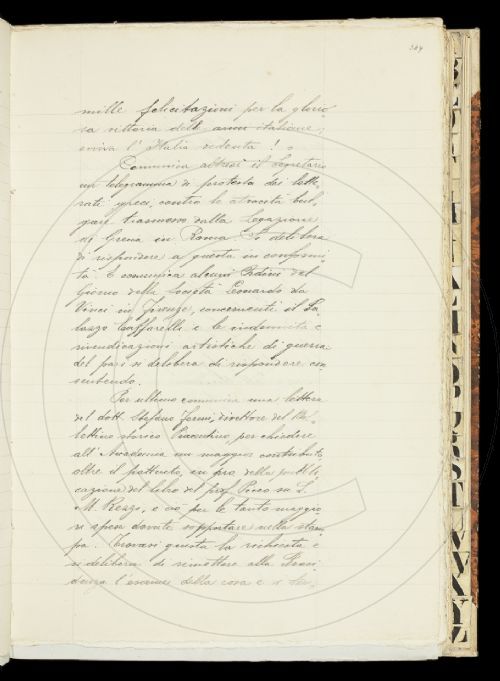 304
mille felicitazioni per la glorio-
sa vittoria delle armi italiane;
evviva l'Italia redenta!
Comunica altresì il Segretario
un telegramma di protesta dei lette-
rati greci, contro le atrocità bul-
gare trasmesso dalla Legazione
di Grecia in Roma. Si delibera
di rispondere a questa in conformi-
tà. E comunica alcuni Ordini del
Giorno della Società Leonardo da
Vinci in Firenze, concernenti il Pa-
lazzo Caffarelli e le indennità e
rivendicazioni artistiche di guerra
del pari si delibera di rispondere con
sentendo.
Per ultimo comunica una lettera
del dott. Stefano Fermi, direttore del Bol-
lettino storico Piacentino, per chiedere
all'Accademia un maggior contributo
oltre il pattuito, in pro della pubbli-
cazione del libro del prof. Picco su L.
M. Rezzi, e ciò per le tanto maggio-
ri spese dovute sopportare nella stam-
pa. Trovasi giusta la richiesta e
si delibera di rimettere alla Presi-
denza l'esame della cosa e
A
B
L
N
O
P
Q
R
S
T
U
V
W
X
Y
Z